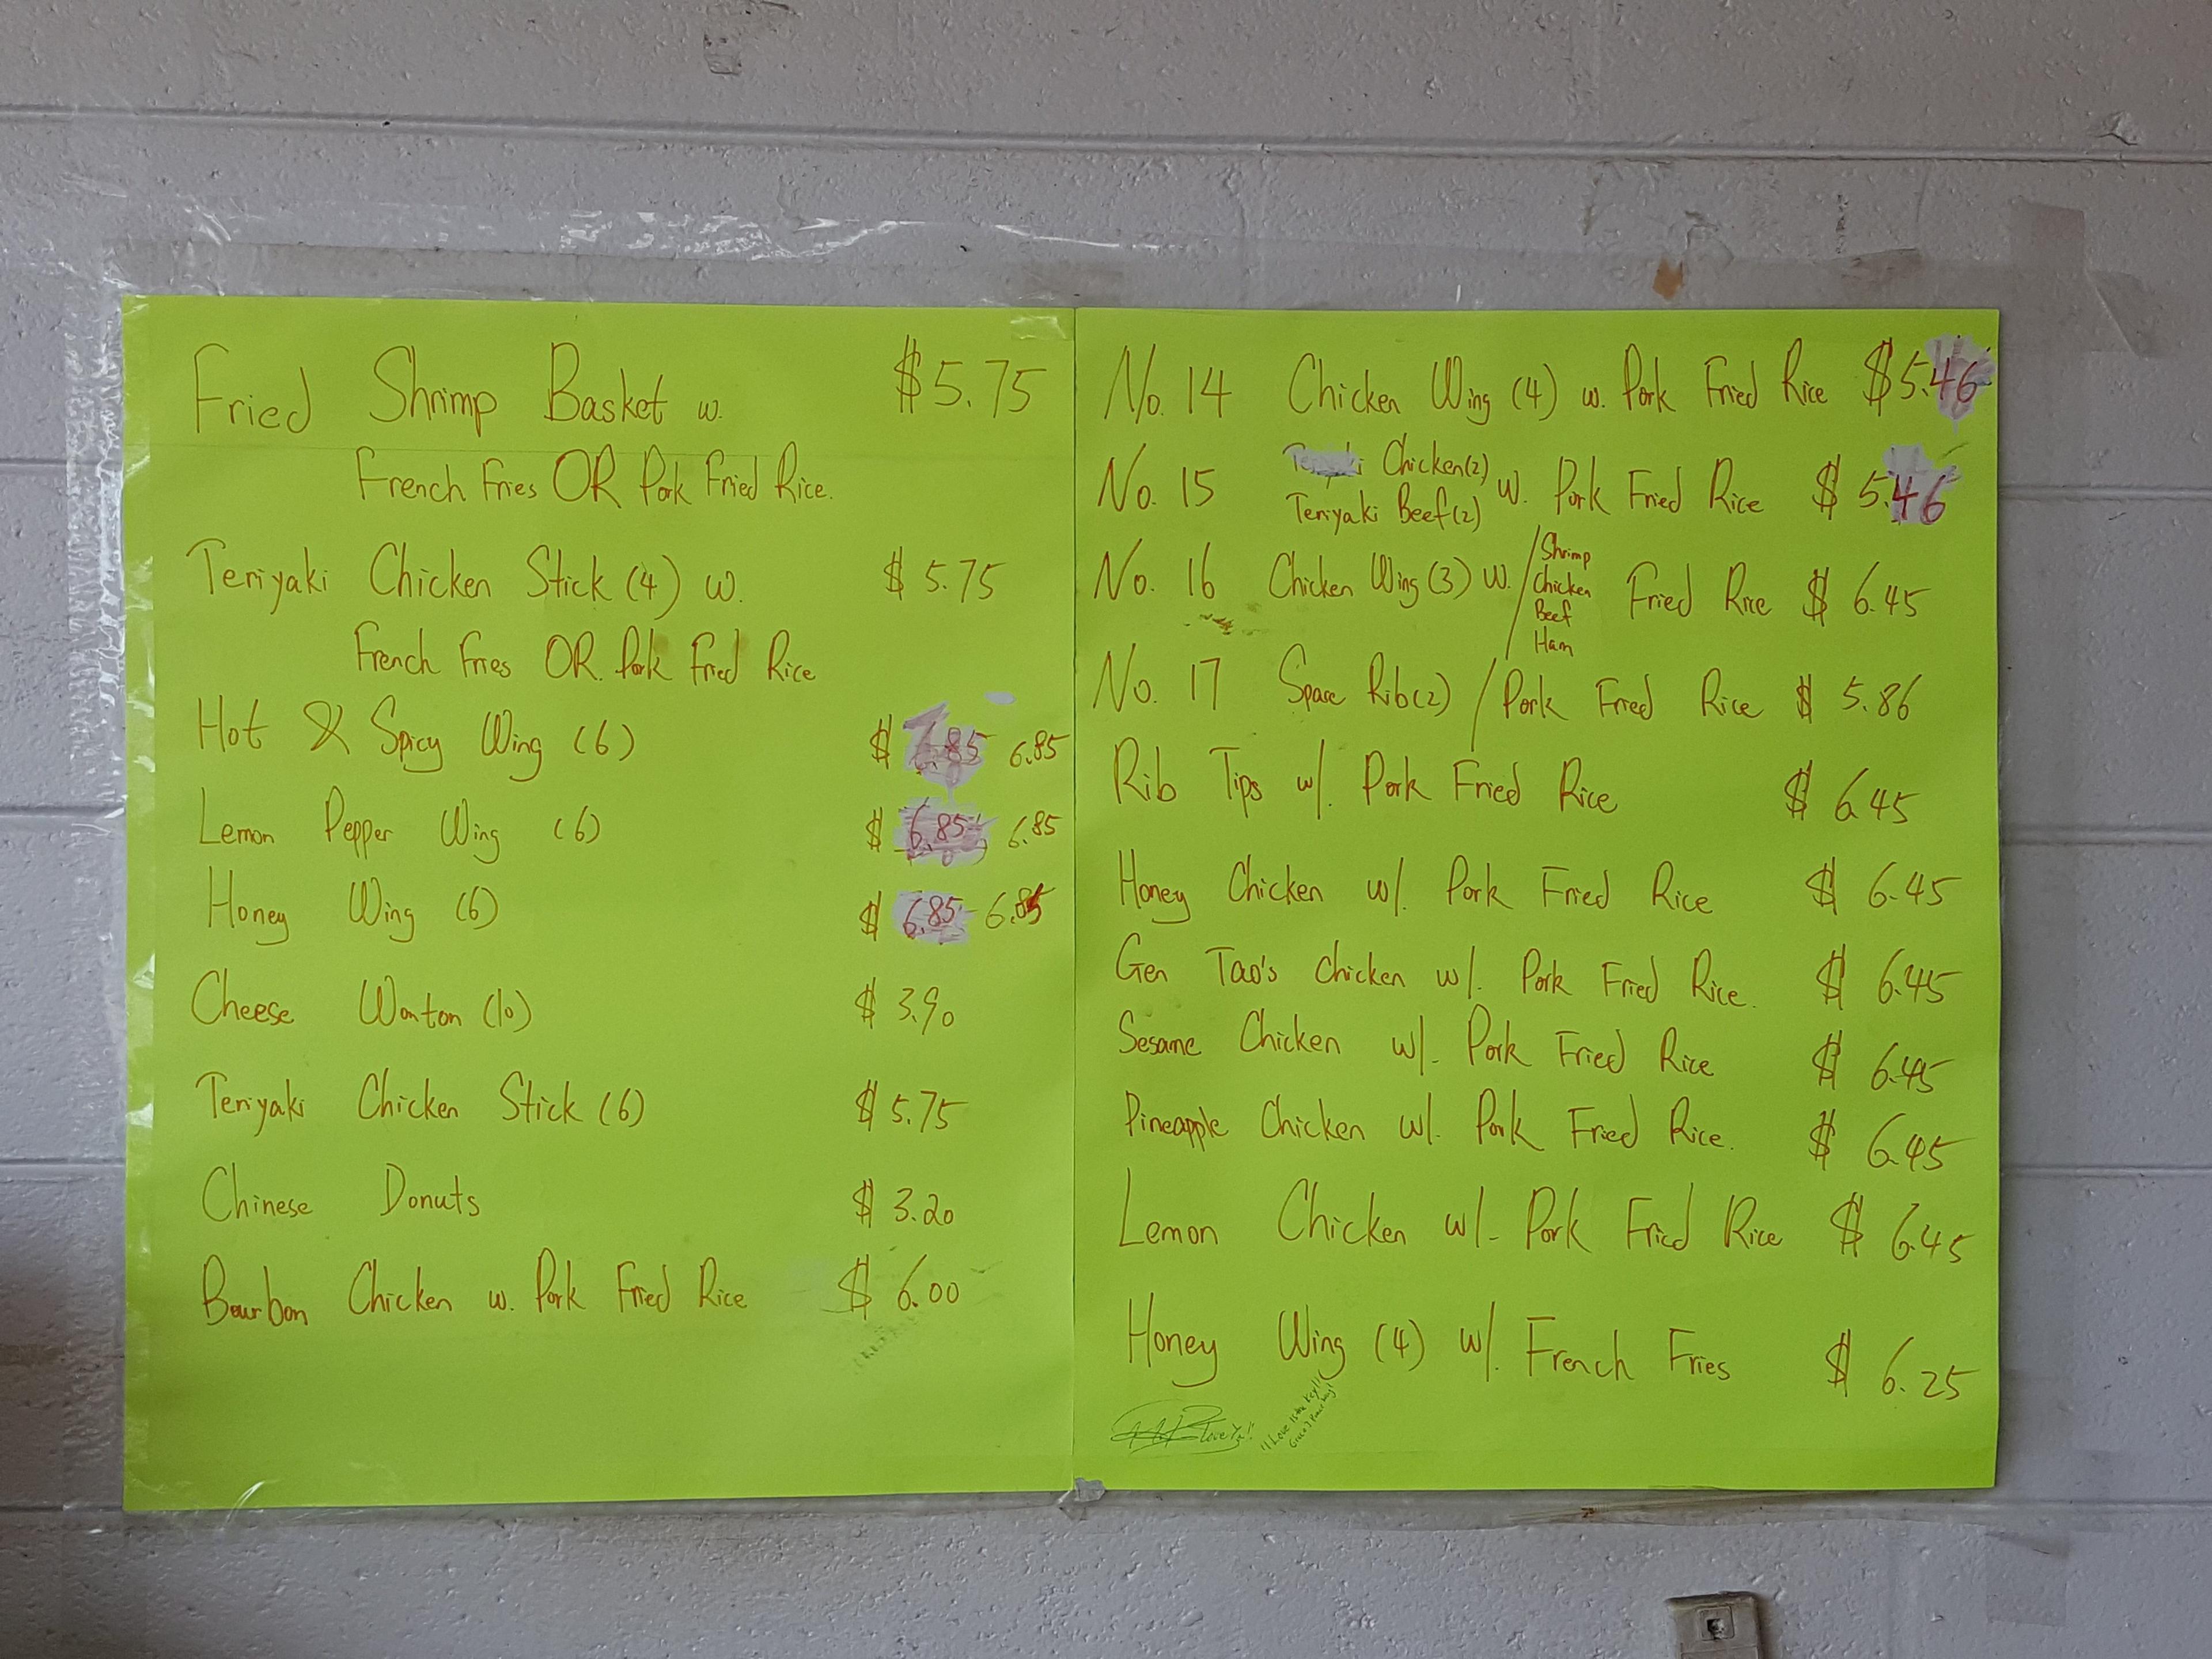 Fried Shrimp Basket w. $5.75
French Fries OR Pork Fried Rice.
Teriyaki Chicken Stick (4) w. $5.75
French Fries OR. Pork Fried Rice
Hot & Spicy Wing (6) $ 6.85 6.85
Lemon Pepper Wing (6) $ 6.85 6.85
Honey Wing (6) $ 6.85 6.85
Cheese Wonton (10) $ 3.90
Teriyaki Chicken Stick (6) $ 5.75
Chinese Donuts $ 3.20
Bourbon Chicken w. Pork Fried Rice $ 6.00
No. 14 Chicken Wing (4) w. Pork Fried Rice $5.46
No. 15 Teriyaki Chicken (2) Teriyaki Beef (2) w. Pork Fried Rice $ 5.46
No. 16 Chicken Wing (3) w. / Shrimp Chicken Beef Ham Fried Rice $ 6.45
No. 17 Spare Rib (2) / Pork Fried Rice $ 5.86
Rib Tips w/. Pork Fried Rice $ 6.45
Honey Chicken w/. Pork Fried Rice $ 6.45
Gen Tao's chicken w/. Pork Fried Rice. $ 6.45
Sesame Chicken w/- Pork Fried Rice $ 6.45
Pineapple Chicken w/. Pork Fried Rice. $ 6.45
Lemon Chicken w/- Pork Fried Rice $ 6.45
Honey Wing (4) w/. French Fries $ 6.25
Love Is the Key!!